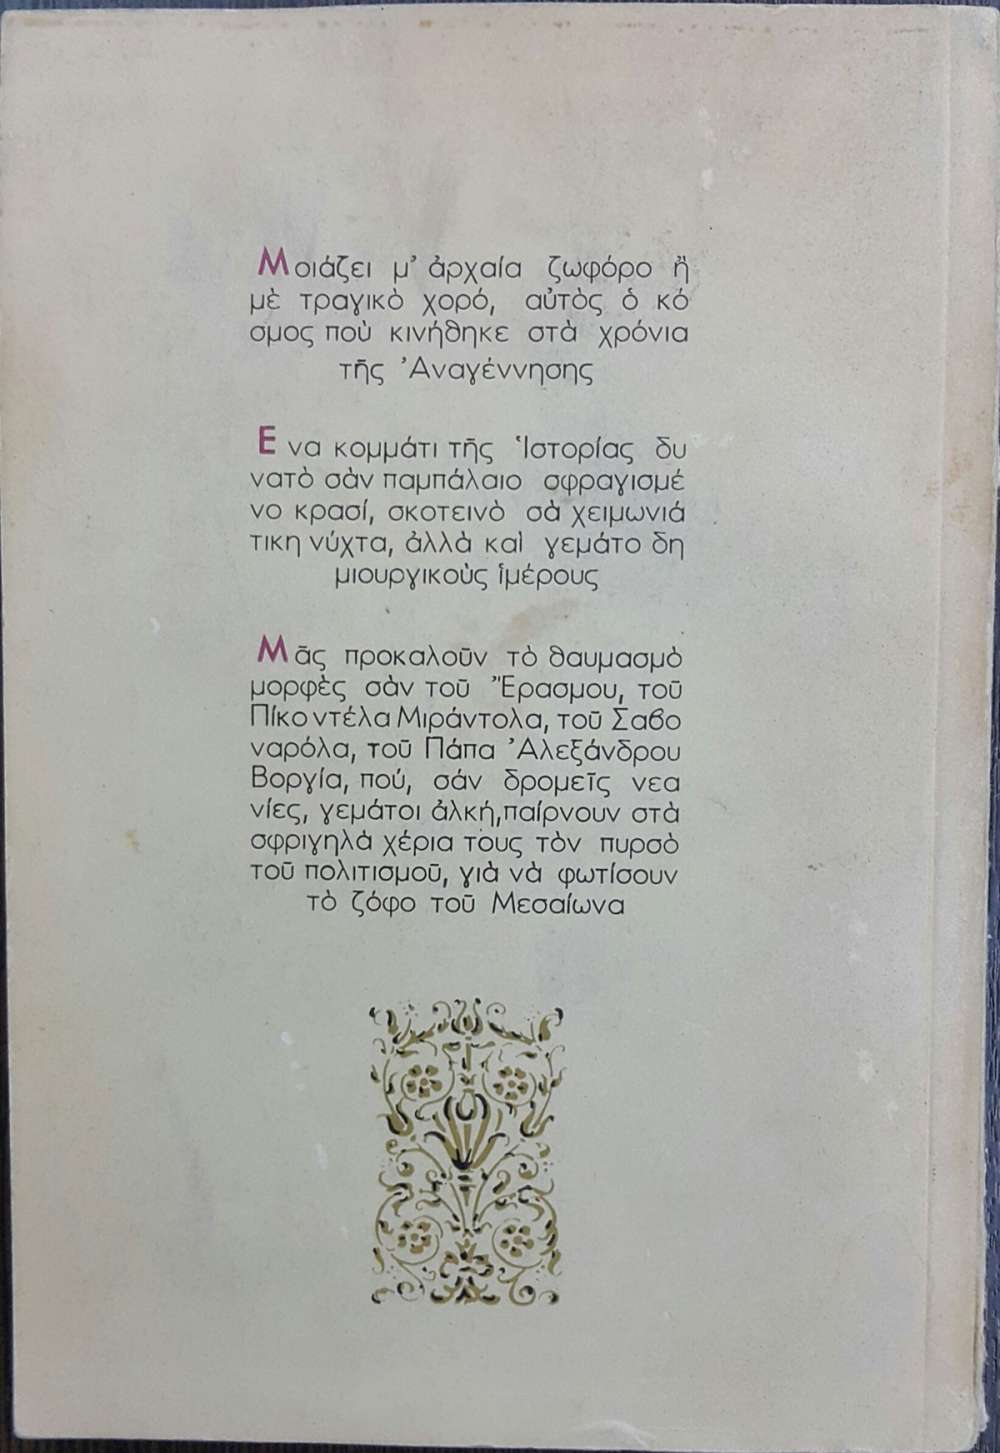 Μοιάζει μ' ἀρχαία ζωφόρο ἢ
μὲ τραγικὸ χορό, αὐτὸς ὁ κό
σμος ποὺ κινήθηκε στὰ χρόνια
τῆς Ἀναγέννησης
Ενα κομμάτι τῆς Ἱστορίας δυ
νατὸ σὰν παμπάλαιο σφραγισμέ
νο κρασί, σκοτεινὸ σὰ χειμωνιά
τικη νύχτα, ἀλλὰ καὶ γεμάτο δη
μιουργικοὺς ἱμέρους
Μᾶς προκαλοῦν τὸ θαυμασμὸ
μορφὲς σὰν τοῦ Ἔρασμου, τοῦ
Πίκο ντέλα Μιράντολα, τοῦ Σαβο
ναρόλα, τοῦ Πάπα Ἀλεξάνδρου
Βοργία, πού, σάν δρομεῖς νεα
νίες, γεμάτοι ἀλκή, παίρνουν στὰ
σφριγηλὰ χέρια τους τὸν πυρσὸ
τοῦ πολιτισμοῦ, γιὰ νὰ φωτίσουν
τὸ ζόφο τοῦ Μεσαίωνα